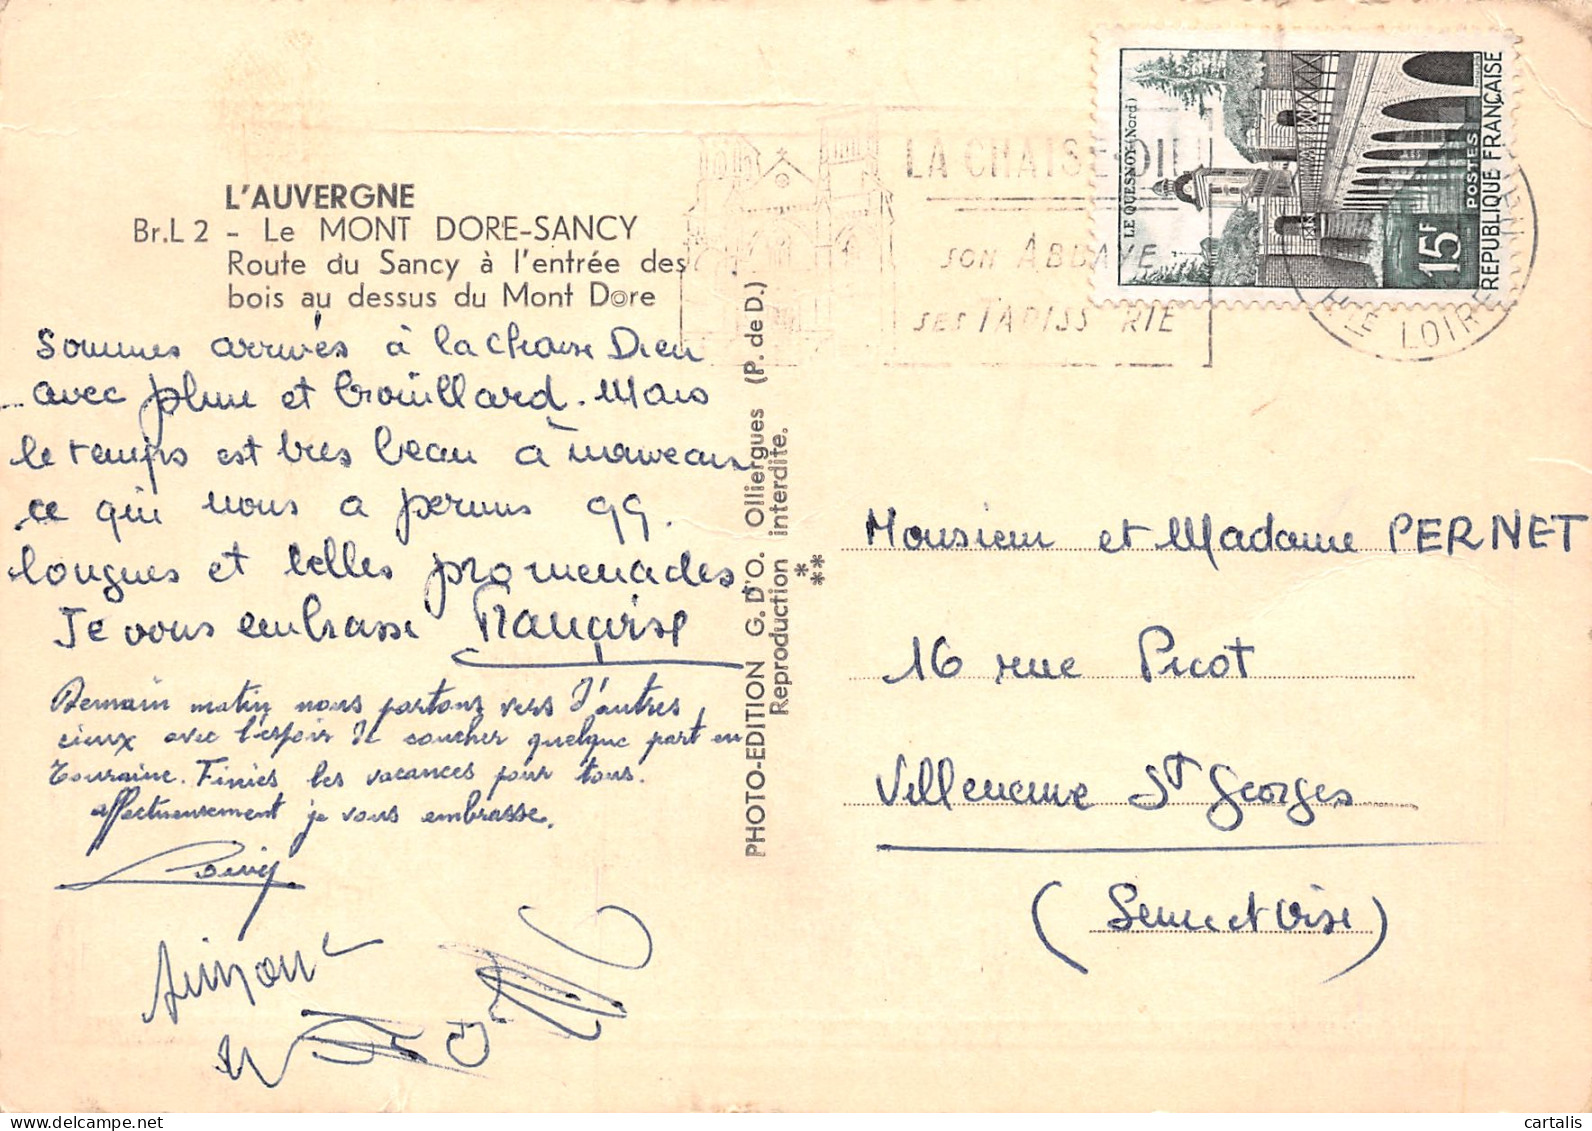 L'AUVERGNE
Br.L 2 - Le MONT DORE-SANCY
Route du Sancy à l'entrée des
bois au dessus du Mont Dore
Sommes arrivés à la Chaise Dieu
avec pluie et brouillard. Mais
le temps est très beau à nouveau
ce qui nous a permis qq.
longues et belles promenades.
Je vous embrasse Françoise
Demain matin nous partons vers d'autres
cieux avec l'espoir de coucher quelque part en
Touraine. Finies les vacances pour tous.
affectueusement je vous embrasse.
PHOTO-EDITION G.D'O. Olliergues (P. de D.)
Reproduction interdite.
***
LA CHAISE-DIEU
SON ABBAYE
SES TAPISSERIE
LE QUESNOY (Nord)
15F
POSTES
REPUBLIQUE FRANÇAISE
HTE LOIRE
Monsieur et Madame PERNET
16 rue Picot
Villeneuve St Georges
(Seine et Oise)
cartalis